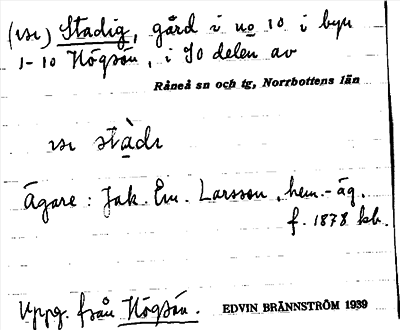 (ısı) Stadig, gård i no 10 i byn
1-10 Högsön, i SO delen av
Råneå sn och tg, Norrbottens län
ısı städı
Ägare: Jak. Em. Larsson, hem.-äg.
f. 1878 kb.
Uppg. från Högsön. EDVIN BRÄNNSTRÖM 1939